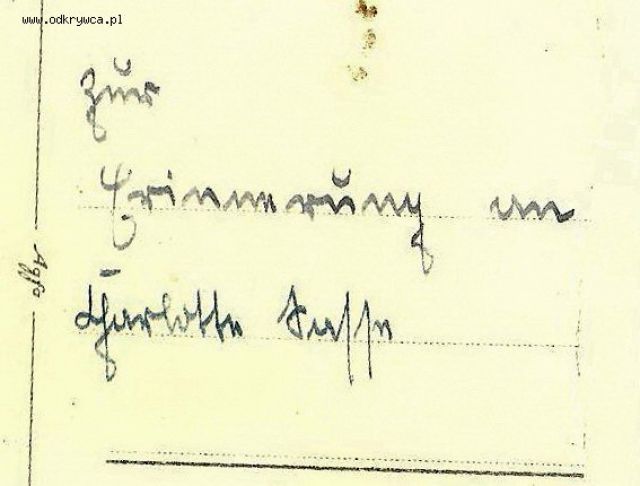 www.odkrywca.pl
zur
Erinnerung an
Agfa
Charlotte Sasse